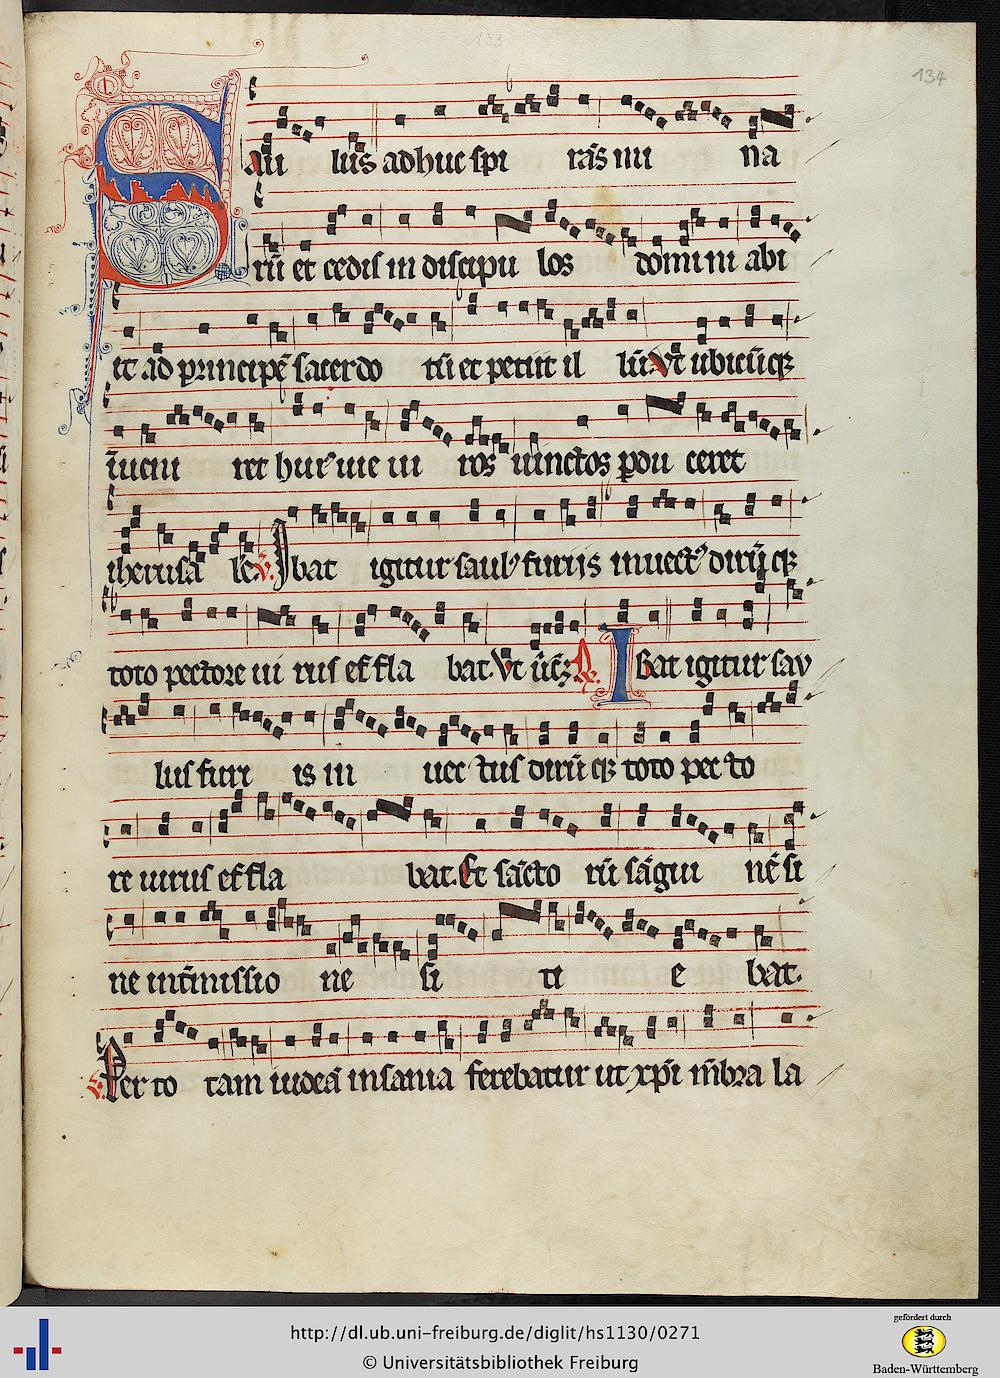 133
134
Sau lus adhuc spi rās mi na
rū et cedis in discipu los domini abi
it ad principē sacerdo tū et petiit il lū. Vt ubicūqꝫ
īueni ret huiꝰ uie ui ros uinctos ꝑdu ceret
iherusa lē. V. Ibat igitur saulꝰ furiis inuectꝰ dirūqꝫ
toto pectore ui rus effla bat. Vt ūcꝫ R. Ibat igitur sau
lus furi is in uec tus dirūqꝫ toto pec to
re uirus effla bat. Et sācto rū sāgui nē si
ne int̄missio ne si ti e bat.
V. Per to tam iudeā insania ferebatur ut xp̄i mēbra la
http://dl.ub.uni-freiburg.de/diglit/hs1130/0271
© Universitätsbibliothek Freiburg
gefördert durch
Baden-Württemberg